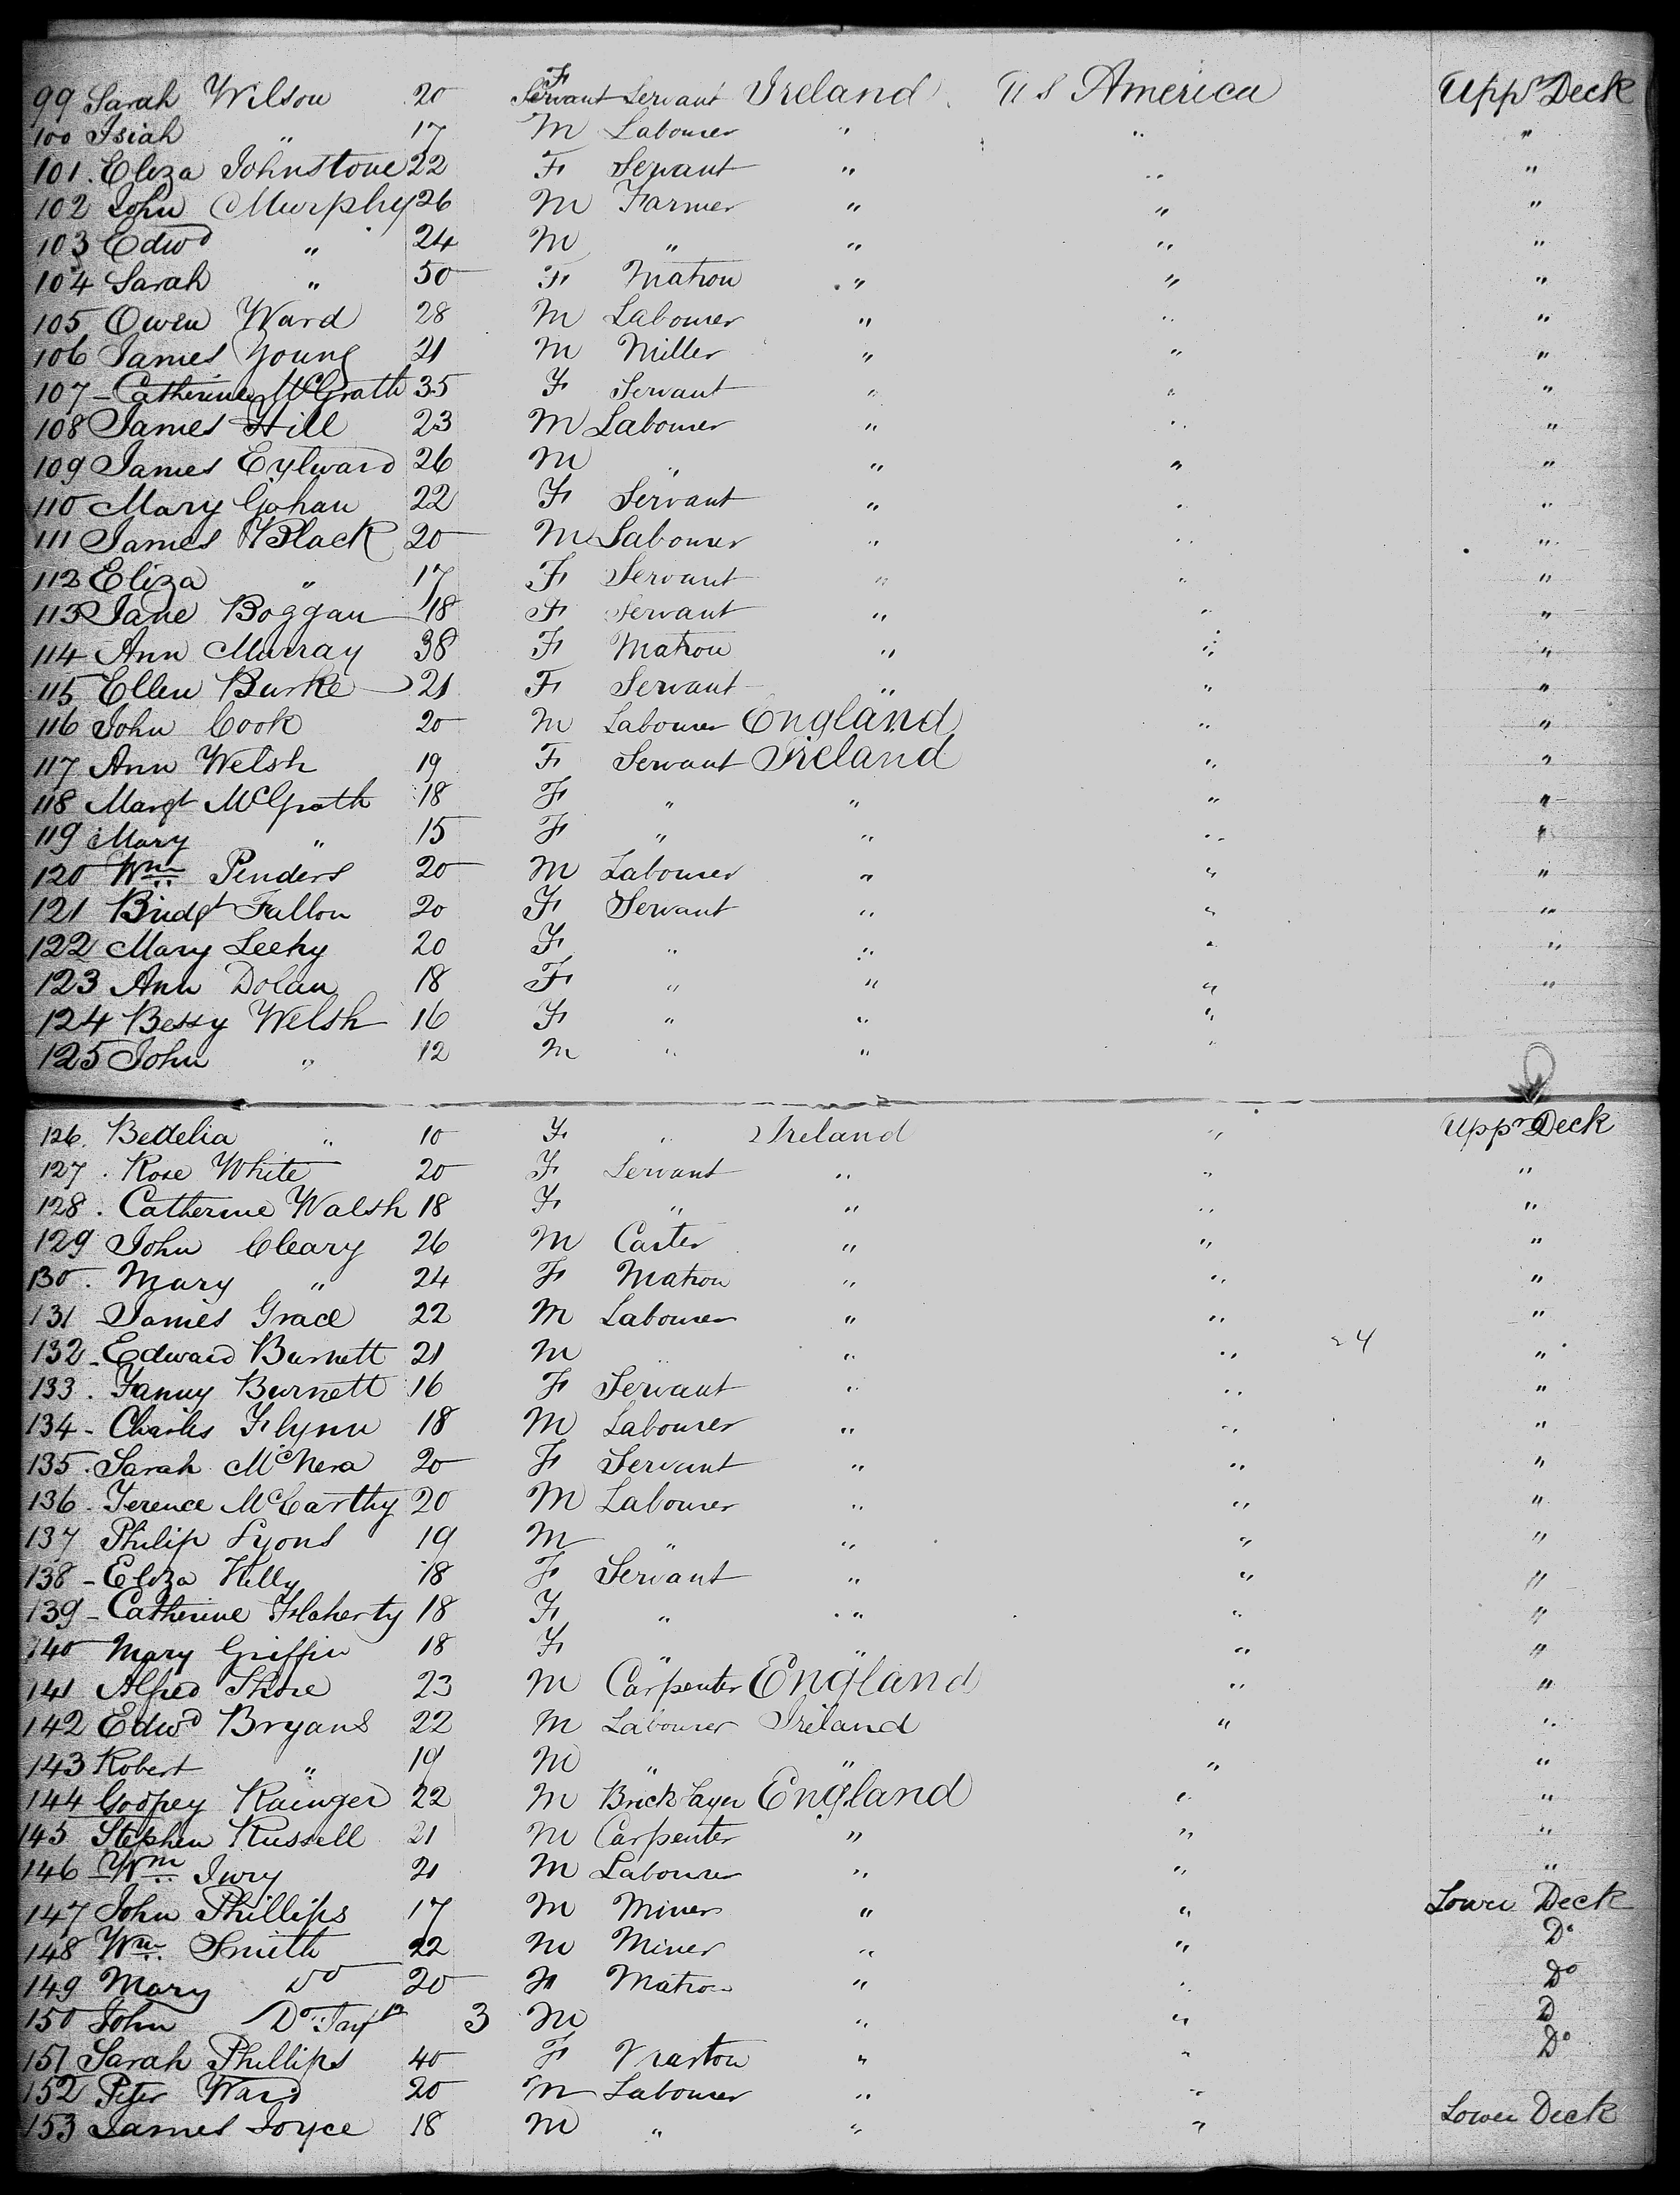 99 Sarah Wilson 20 F Servant Servant Ireland U S America Uppr Deck
100 Isiah " 17 M Labourer " " "
101. Eliza Johnstone 22 F Servant " " "
102 John Murphy 26 M Farmer " " "
103 Edwd " 24 M " " " "
104 Sarah " 50 F Matron " " "
105 Owen Ward 28 M Labourer " " "
106 James Young 21 M Miller " " "
107 - Catherine McGrath 35 F Servant " " "
108 James Hill 23 M Labourer " " "
109 James Eylward 26 M " " " "
110 Mary Gahan 22 F Servant " " "
111 James Black 20 M Labourer " " "
112 Eliza " 17 F Servant " " "
113 Jane Boggan 18 F Servant " " "
114 Ann Murray 38 F Matron " " "
115 Ellen Burke 21 F Servant " " "
116 John Cook 20 M Labourer England " "
117 Ann Welsh 19 F Servant Ireland " "
118 Margt McGrath 18 F " " " "
119 Mary " 15 F " " " "
120 Wm Penders 20 M Labourer " " "
121 Bridgt Fallon 20 F Servant " " "
122 Mary Leehy 20 F " " " "
123 Ann Dolan 18 F " " " "
124 Bessy Welsh 16 F " " "
125 John " 12 M " " "
126. Bedelia " 10 F " Ireland " Uppr Deck
127. Rose White 20 F Servant " " "
128. Catherine Walsh 18 F " " " "
129 John Cleary 26 M Carter " " "
130. Mary " 24 F Matron " " "
131 James Grace 22 M Labourer " " "
132 - Edward Burnett 21 M " " " 24 "
133. Fanny Burnett 16 F Servant " " "
134 - Charles Flynn 18 M Labourer " " "
135. Sarah McNera 20 F Servant " " "
136. Terence McCarthy 20 M Labourer " " "
137 Philip Lyons 19 M " " " "
138 - Eliza Killy 18 F Servant " " "
139 - Catherine Flaherty 18 F " " " "
140 Mary Griffin 18 F " " " "
141 Alfred Shore 23 M Carpenter England " "
142 Edwd Bryans 22 M Labourer Ireland " "
143 Robert " 19 M " " " "
144 Godfrey Rainger 22 M Brick Layer England " "
145 Stephen Russell 21 M Carpenter " " "
146 Wm Ivory 21 M Labourer " " "
147 John Phillips 17 M Miner " " Lower Deck
148 Wm Smith 22 M Miner " " Do
149 Mary Do 20 F Matron " " Do
150 John Do Inft 3 M " " D
151 Sarah Phillips 40 F Matron " " Do
152 Peter Ward 20 M Labourer " "
153 James Joyce 18 M " " " Lower Deck